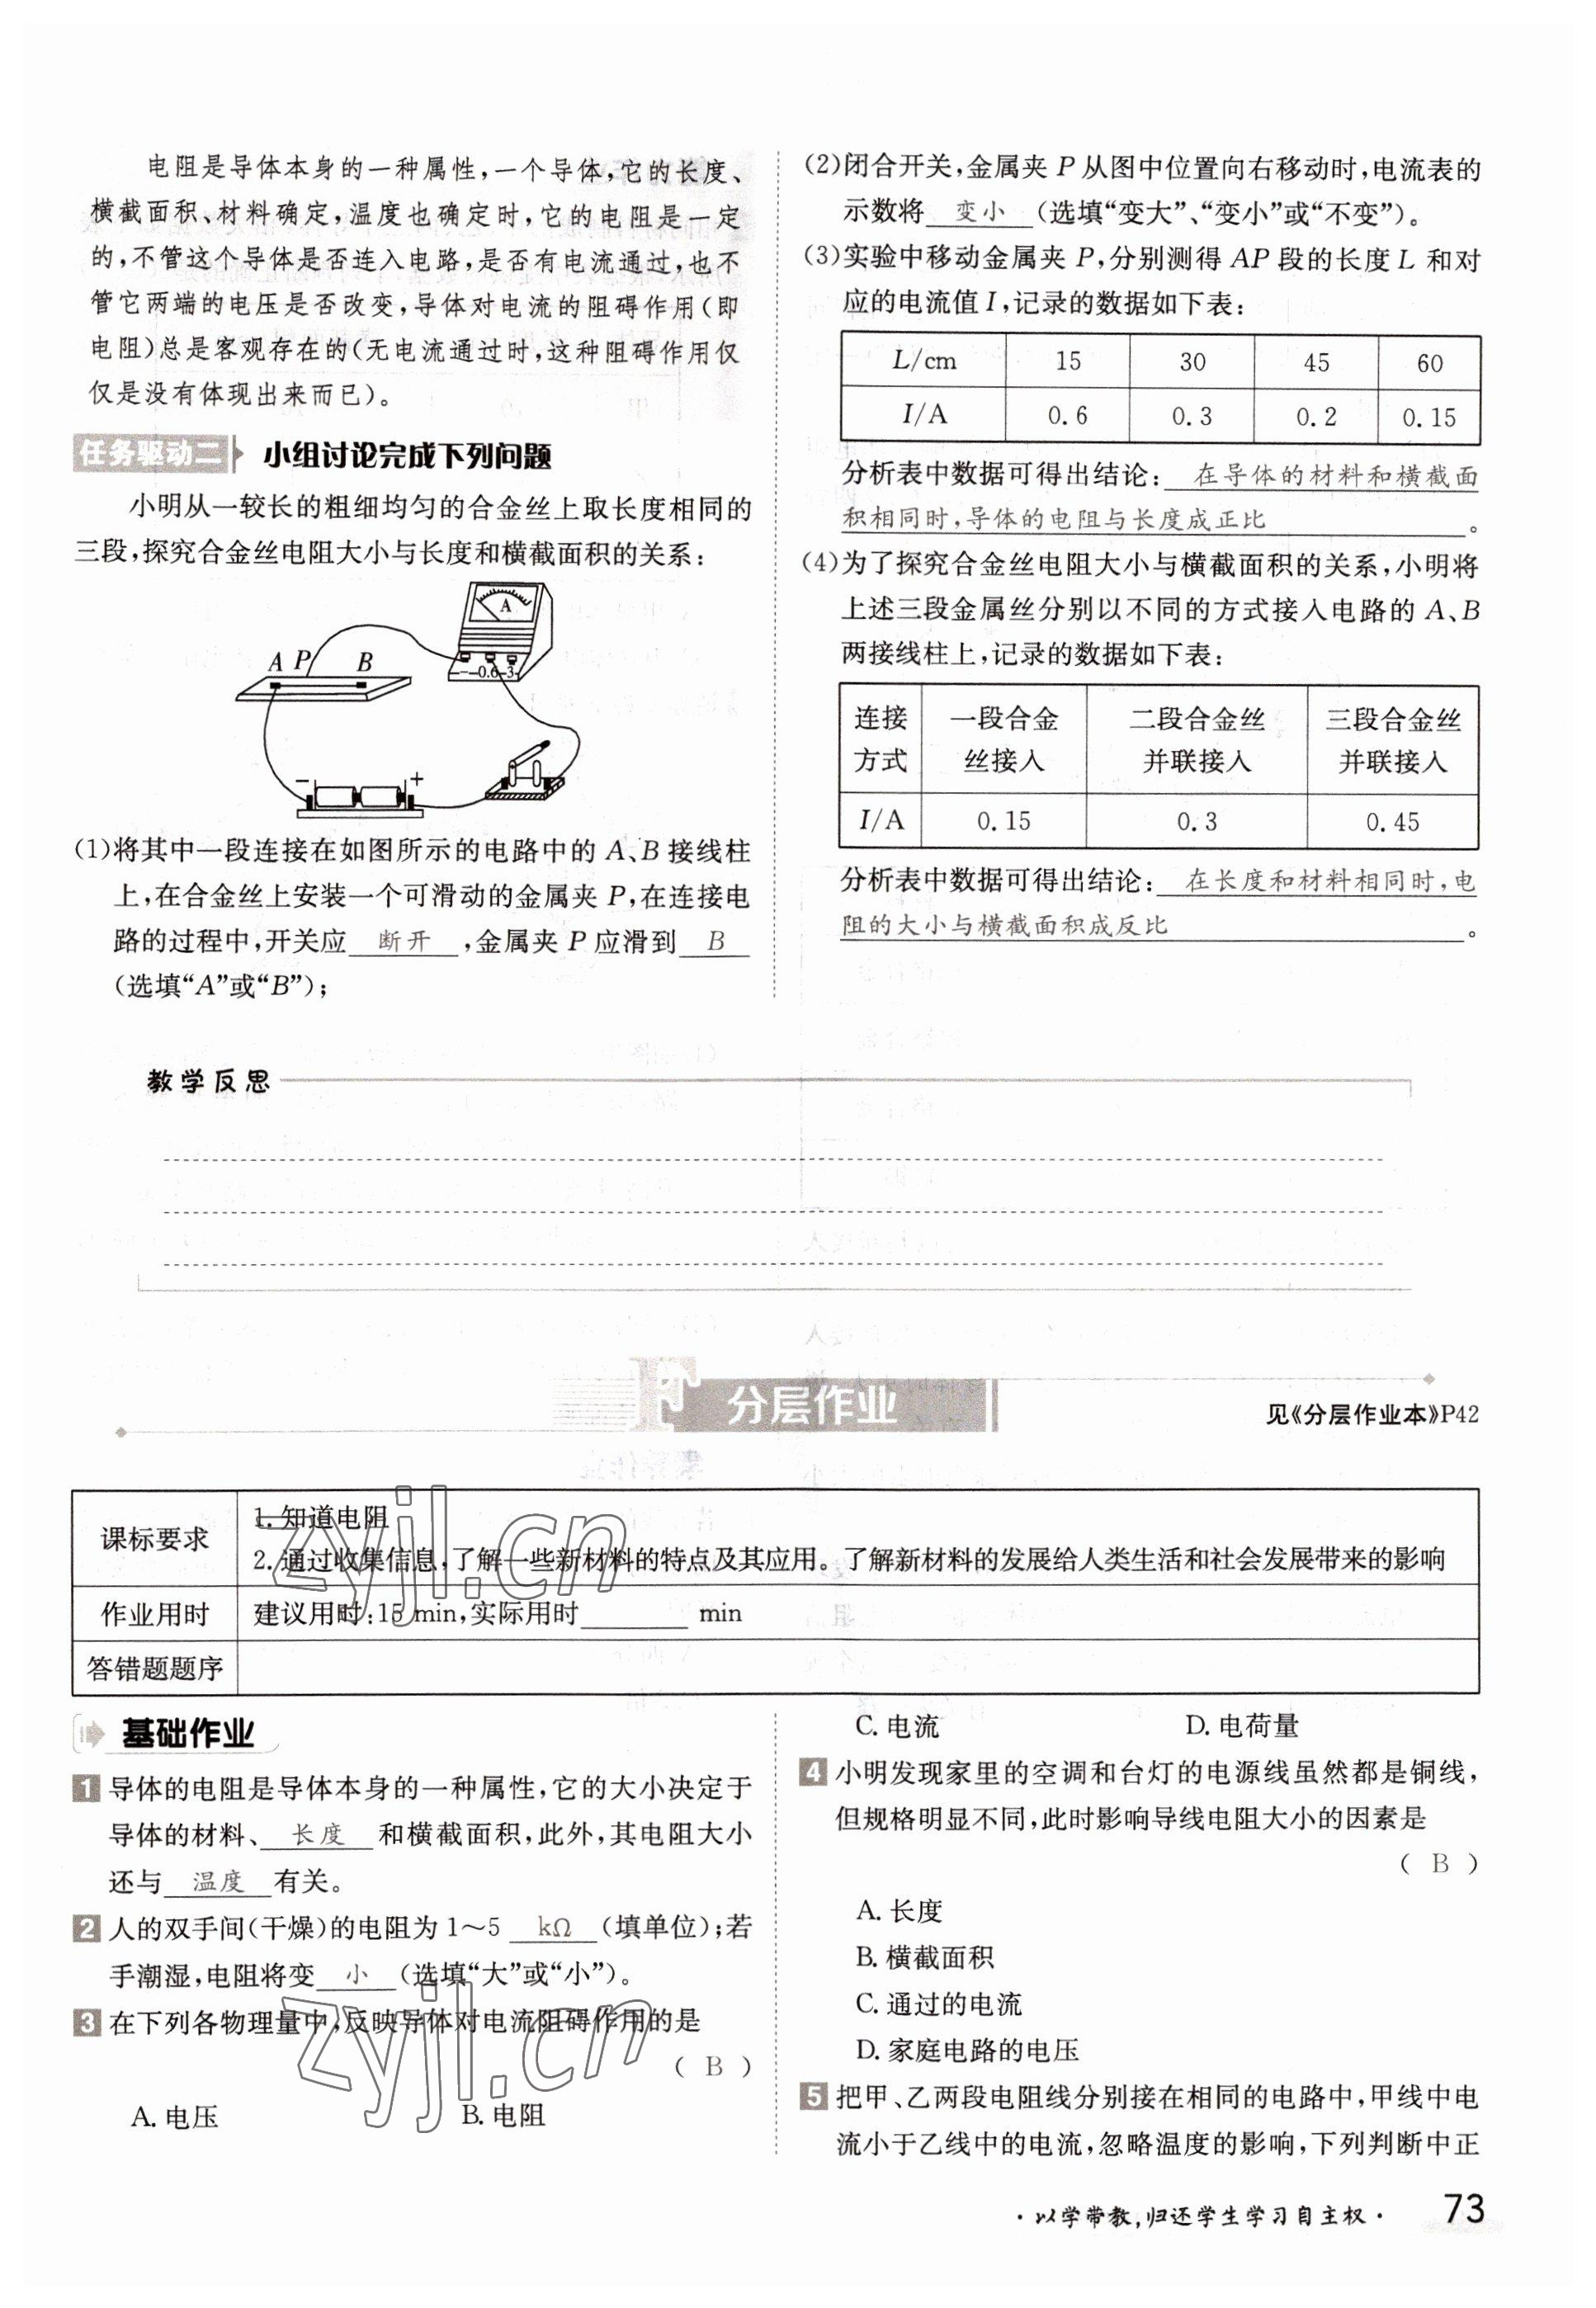 电阻是导体本身的一种属性，一个导体，它的长度、
横截面积、材料确定，温度也确定时，它的电阻是一定
的，不管这个导体是否连入电路，是否有电流通过，也不
管它两端的电压是否改变，导体对电流的阻碍作用（即
电阻）总是客观存在的（无电流通过时，这种阻碍作用仅
仅是没有体现出来而已）。
任务驱动二 小组讨论完成下列问题
小明从一较长的粗细均匀的合金丝上取长度相同的
三段，探究合金丝电阻大小与长度和横截面积的关系：
A
A P B
- -0.6-3-
- +
(1)将其中一段连接在如图所示的电路中的 A、B 接线柱
上，在合金丝上安装一个可滑动的金属夹 P，在连接电
路的过程中，开关应 断开 ，金属夹 P 应滑到 B
（选填“A”或“B”）；
(2)闭合开关，金属夹 P 从图中位置向右移动时，电流表的
示数将 变小 （选填“变大”、“变小”或“不变”）。
(3)实验中移动金属夹 P，分别测得 AP 段的长度 L 和对
应的电流值 I，记录的数据如下表：
L/cm 15 30 45 60
I/A 0.6 0.3 0.2 0.15
分析表中数据可得出结论： 在导体的材料和横截面
积相同时，导体的电阻与长度成正比 。
(4)为了探究合金丝电阻大小与横截面积的关系，小明将
上述三段金属丝分别以不同的方式接入电路的 A、B
两接线柱上，记录的数据如下表：
连接 一段合金 二段合金丝 三段合金丝
方式 丝接入 并联接入 并联接入
I/A 0.15 0.3 0.45
分析表中数据可得出结论： 在长度和材料相同时，电
阻的大小与横截面积成反比 。
教学反思
分层作业
见《分层作业本》P42
课标要求 1. 知道电阻
2. 通过收集信息，了解一些新材料的特点及其应用。了解新材料的发展给人类生活和社会发展带来的影响
作业用时 建议用时：15 min，实际用时 min
答错题题序
zyjl.cn
基础作业
1 导体的电阻是导体本身的一种属性，它的大小决定于
导体的材料、 长度 和横截面积，此外，其电阻大小
还与 温度 有关。
2 人的双手间（干燥）的电阻为 1～5 kΩ （填单位）；若
手潮湿，电阻将变 小 （选填“大”或“小”）。
3 在下列各物理量中，反映导体对电流阻碍作用的是
（ B ）
A. 电压 B. 电阻
zyjl.cn
C. 电流 D. 电荷量
4 小明发现家里的空调和台灯的电源线虽然都是铜线，
但规格明显不同，此时影响导线电阻大小的因素是
（ B ）
A. 长度
B. 横截面积
C. 通过的电流
D. 家庭电路的电压
5 把甲、乙两段电阻线分别接在相同的电路中，甲线中电
流小于乙线中的电流，忽略温度的影响，下列判断中正
·以学带教，归还学生学习自主权· 73